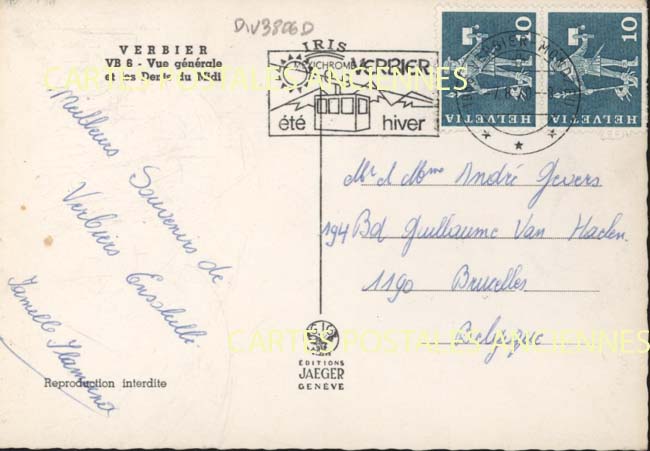 DIV3806D
VERBIER
VB 6 - Vue générale
et les Dents du Midi
IRIS
MEXICHROME
VERBIER
été hiver
10
10
VERBIER
CARTES POSTALES ANCIENNES
Meilleurs
Souvenirs de
Verbiers
Ensoleillé
Famille
Mr & Mme André Gevers
194 Bd Guillaume Van Haelen
1190 Bruxelles
Belgique
CARTES POSTALES ANCIENNES
EDITIONS
JAEGER
GENÈVE
Reproduction interdite